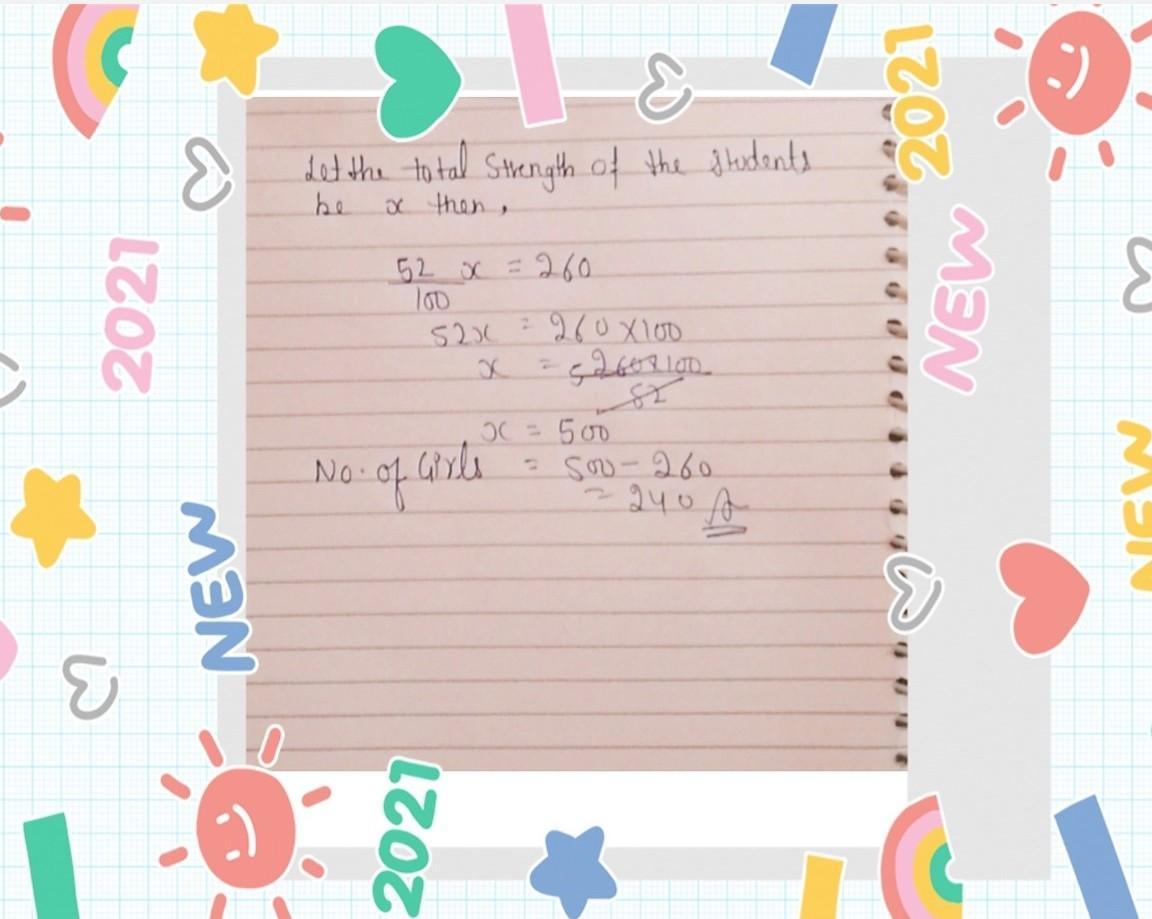 Let the total Strength of the students
be x then,
52 x = 260
100
52x = 260 x 100
x = 5 260 x 100
52
x = 500
No. of Girls = 500 - 260
= 240 A
2021
2021
2021
NEW
NEW
NEW